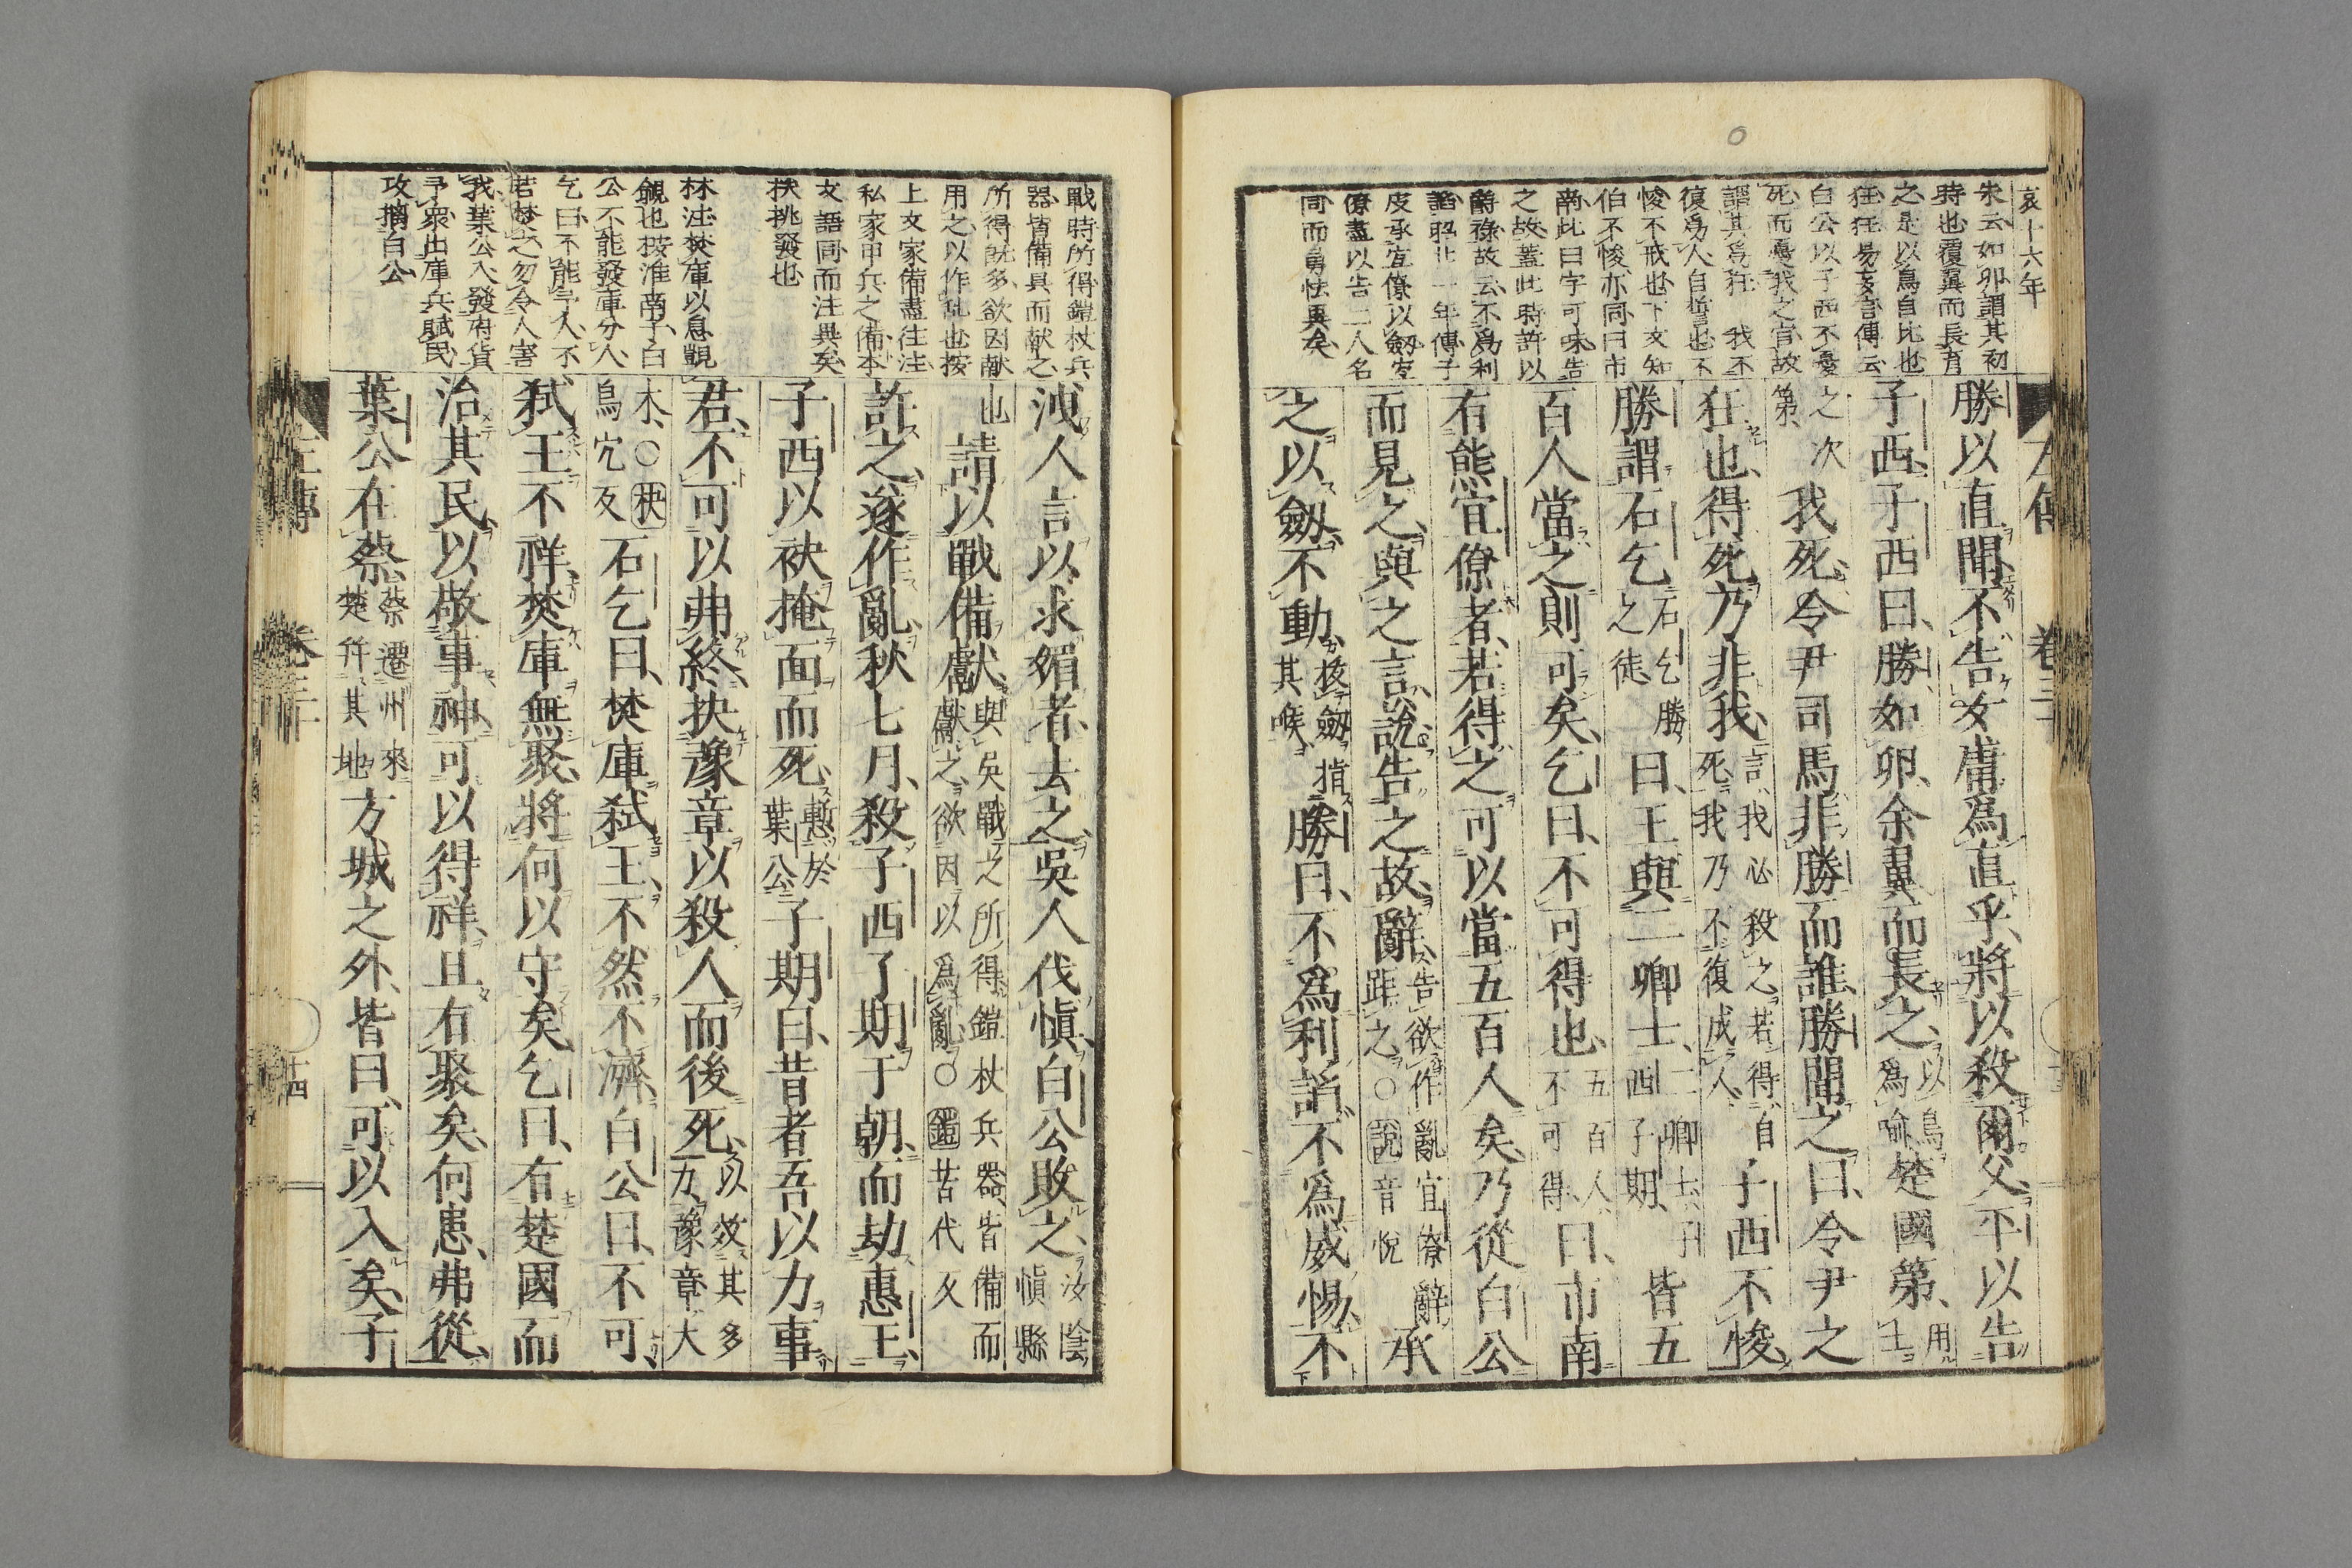 哀十六年
朱云如卵謂其初
時也覆翼而長育
之是以鳥自比也
狂狂易妄言傳云
白公以子西不憂
死而憂我之官故
謂其爲狂 我不
復爲人自誓也不
悛不戒也下文知
伯不悛亦同曰市
南此曰字可味告
之故蓋此時許以
爵祿故云不爲利
諂昭廿一年傳子
皮承宜僚以劔宜
僚盡以告二人名
同而勇怯異矣
勝以直聞不告女庸爲直乎將以殺爾父平以告
子西子西曰勝如卵余翼而長之以鳥爲喻楚國第用士
之次第我死令尹司馬非勝而誰勝聞之曰令尹之
狂也得死乃非我言我必殺之若得自死我乃不復成人子西不悛
勝謂石乞石乞勝之徒曰王與二卿士二卿士子西子期皆五
百人當之則可矣乞曰不可得也五百人不可得曰市南
有熊宜僚者若得之可以當五百人矣乃從白公
而見之與之言說告之故辭告欲作亂宜僚辭距之○說音悅承
之以劔不動拔劔指其喉勝曰不爲利諂不爲威惕不
戰時所得鎧杖兵
器皆備具而献之
所得既多欲因献
用之以作乱也按
上文家備盡往注
私家甲兵之備本
文語同而注異矣
抉挑發也
林注焚庫以息覬
覦也按淮南子白
公不能發庫分人
乞曰不能予人不
若焚之勿令人害
我葉公入發府貨
予衆出庫兵賦民
攻擒白公
洩人言以求媚者去之吳人伐愼白公敗之汝陰愼縣
也請以戰備獻與吳戰之所得鎧杖兵器皆備而獻之欲因以爲亂○鎧苦代反
許之遂作亂秋七月殺子西子期于朝而劫惠王
子西以袂掩面而死慙於葉公子期曰昔者吾以力事
君不可以弗終抉豫章以殺人而後死以效其多力豫章大
木○抉烏穴反石乞曰焚庫弑王不然不濟白公曰不可
弑王不祥焚庫無聚將何以守矣乞曰有楚國而
治其民以敬事神可以得祥且有聚矣何患弗從
葉公在蔡蔡遷州來楚并其地方城之外皆曰可以入矣子
左傳 卷三十 十四